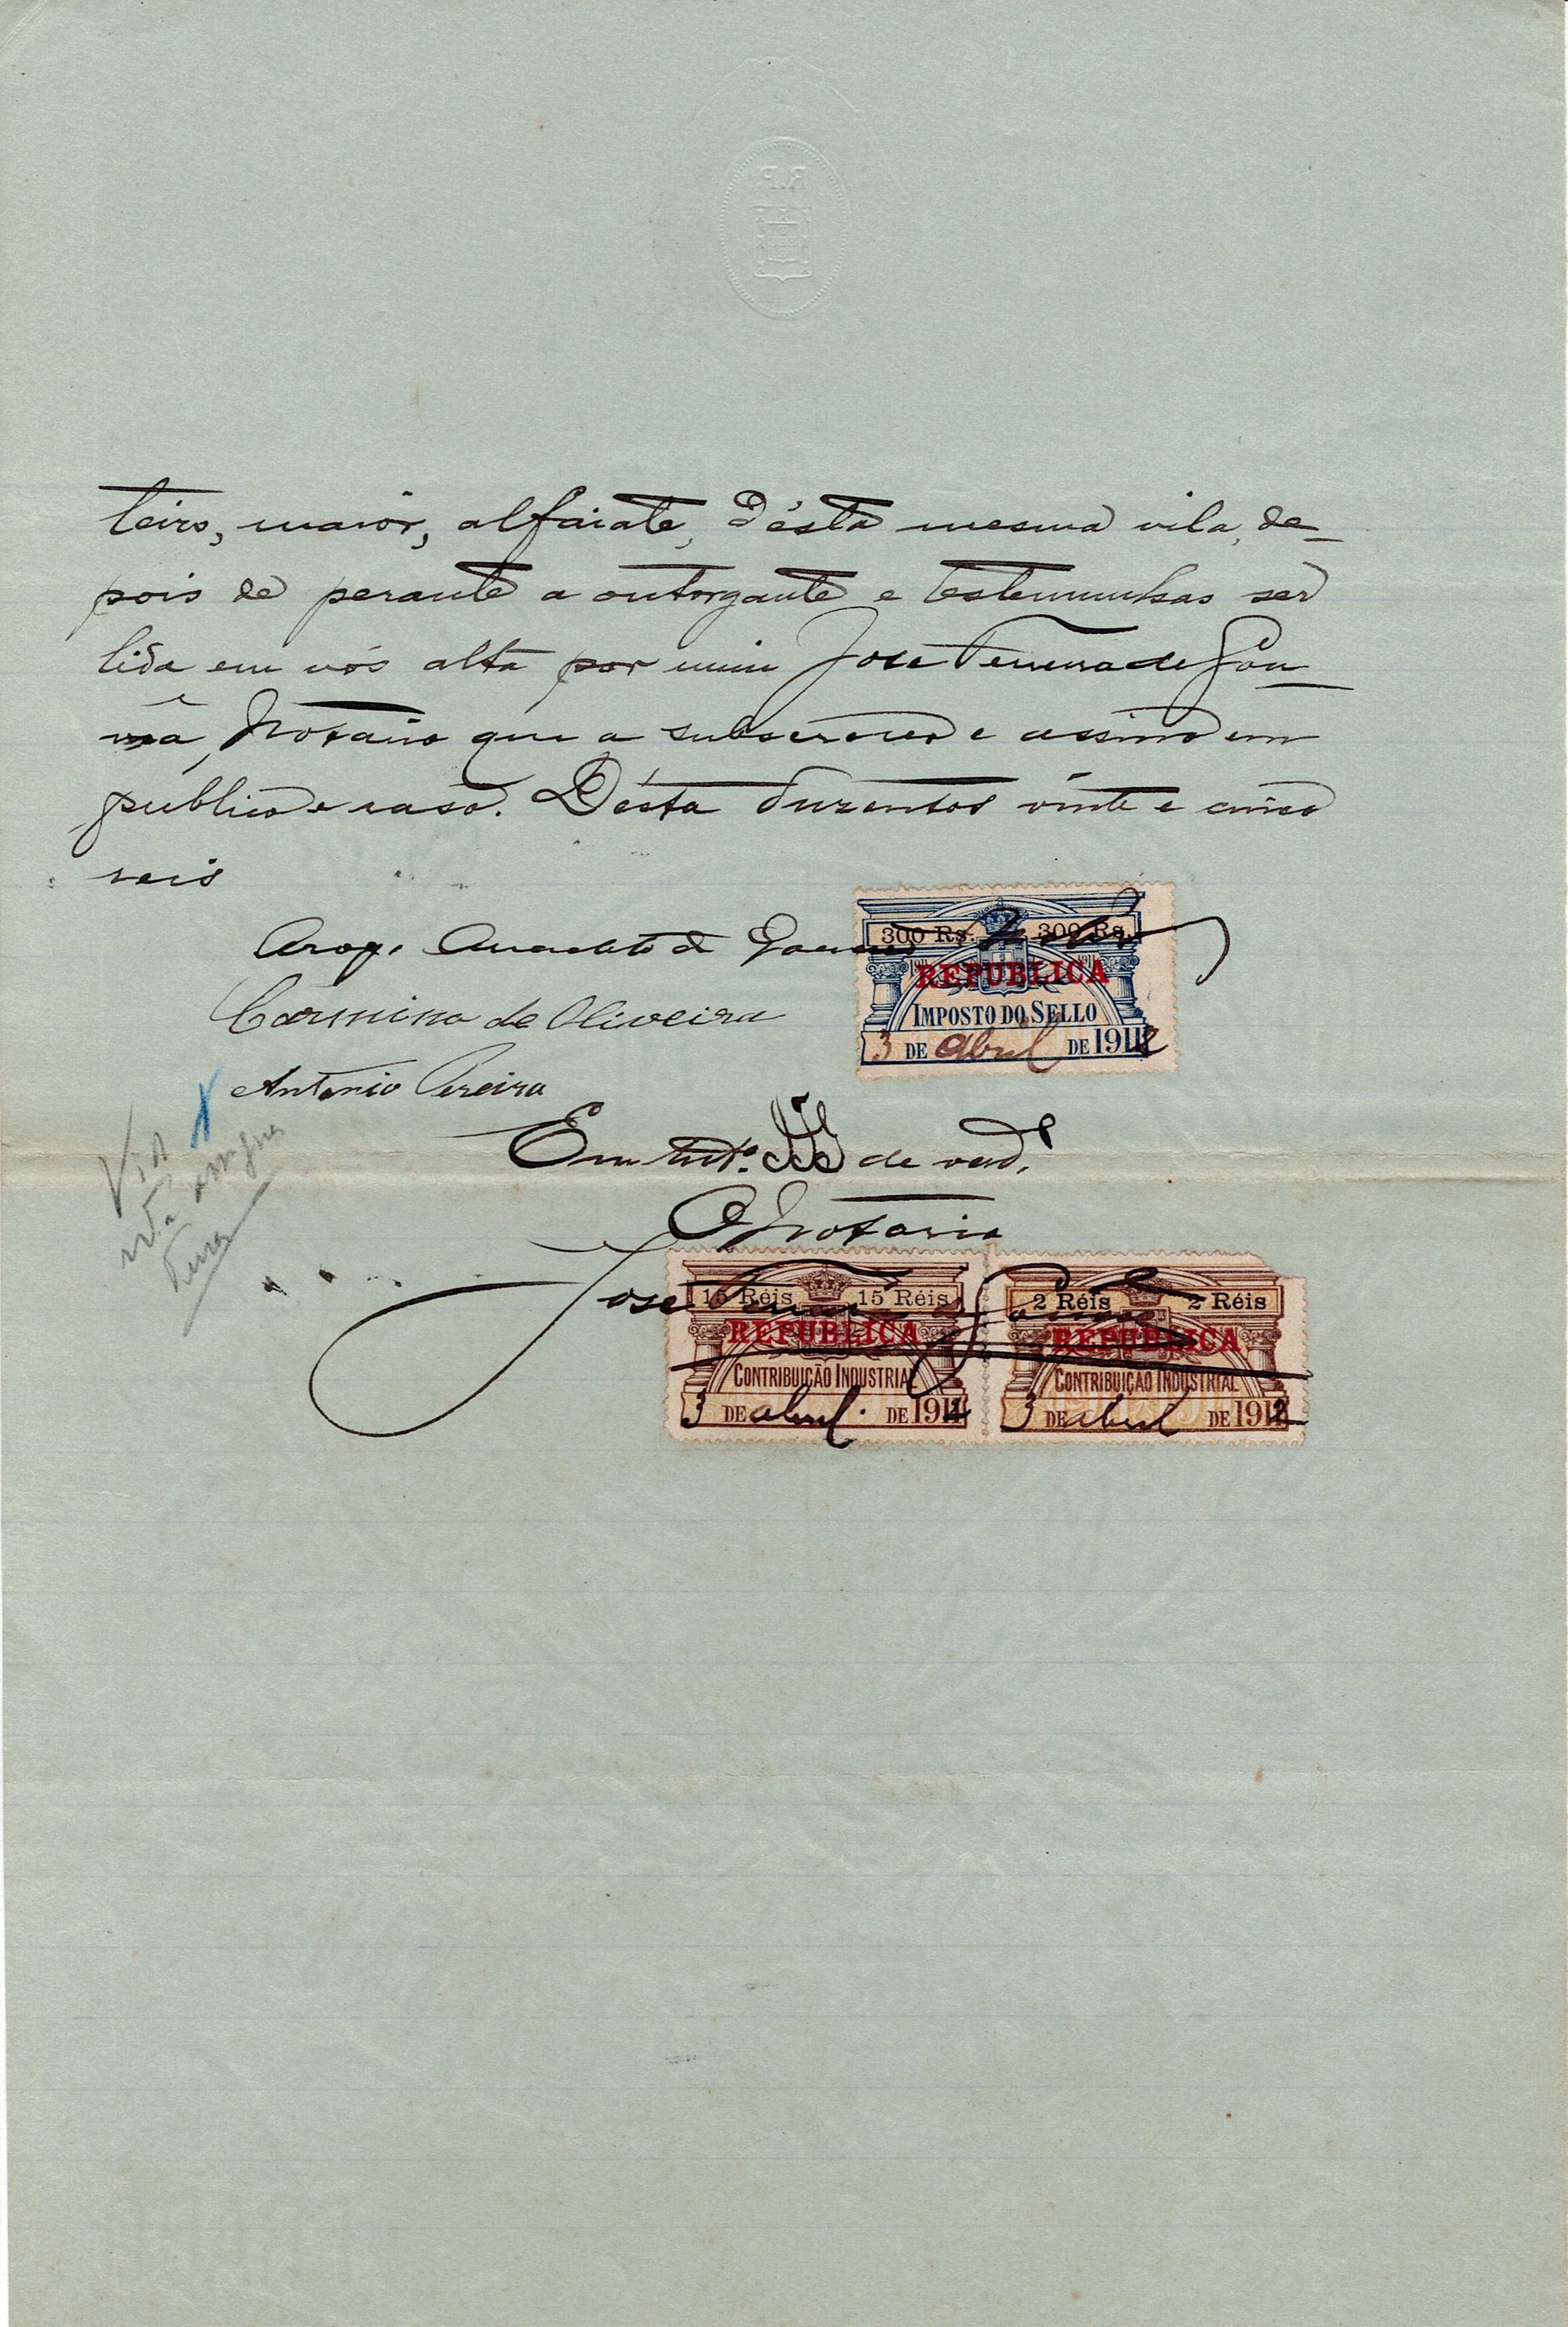 R.P.
teiro, maiór, alfaiate, d'ésta mesma vila, de-
pois de perante a outorgante e testemunhas ser
lida em vós alta por mim José Ferreira de Gou-
vêa, Notario que a subscrevo e assino em
publico e raso. Désta duzentos vinte e cinco
reis
Arog.
Carmina de Oliveira
Antonio Pereira
300 Rs. 300 Rs.
REPUBLICA
IMPOSTO DO SELLO
3 DE abril DE 1912
Em test.º de verd.e
O Notario
José Ferreira de Gouvêa
15 Réis 15 Réis
REPUBLICA
CONTRIBUIÇÃO INDUSTRIAL
3 DE abril DE 1912
2 Réis 2 Réis
REPUBLICA
CONTRIBUIÇÃO INDUSTRIAL
3 DE abril DE 1912